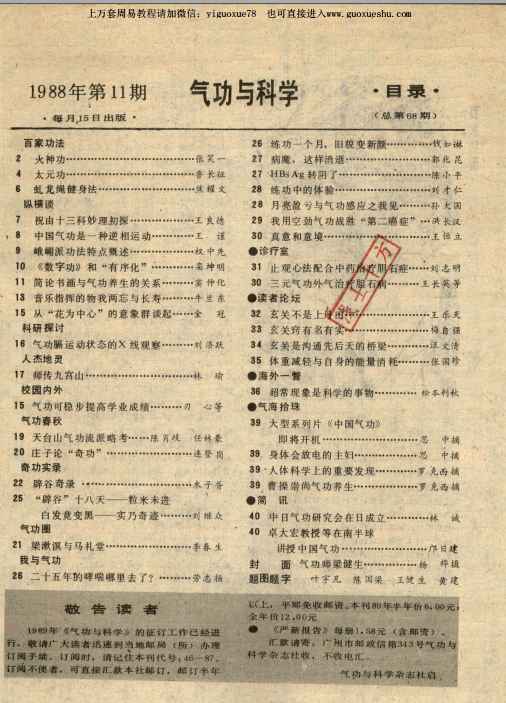 上万套周易教程请加微信：yiguoxue78 也可直接进入www.guoxueshu.com
1988年第11期
·每月15日出版·
气功与科学
·目录·
（总第68期）
百家功法
2 火神功…………张笑一
4 太元功…………鲁长征
6 虬龙绳健身法…………熊耀文
纵横谈
7 祝由十三科妙理初探…………王良德
8 中国气功是一种逆相运动…………王 谨
9 峨嵋派功法特点概述…………权中先
10 《数字功》和“有序化”…………栾坤明
11 简论书画与气功养生的关系…………窦仲化
13 音乐指挥的物我两忘与长寿…………牛里东
15 从“花为中心”的意象群谈起……金 冠
科研探讨
16 气功膈运动状态的X线观察……刘浩跃
人杰地灵
17 师传九宫山…………林 瑜
校园内外
15 气功可稳步提高学业成绩………刃 心等
气功春秋
19 天台山气功流派略考……陈肖岐 任林豪
20 庄子论“奇功”…………连登岗
奇功实录
22 辟谷奇录…………朱子吾
25 “辟谷”十八天——粒米未进
白发竟变黑——实乃奇迹………刘继众
气功圈
21 梁漱溟与马礼堂…………李春生
我与气功
26 二十五年的哮喘哪里去了？……劳志扬
26 练功一个月，旧貌变新颜…………钱如琳
27 病魔，这样消退…………郭化昆
27 HBsAg转阴了…………陈小平
28 练功中的体验…………刘才仁
28 月亮盈亏与气功感应之我见……孙大国
29 我用空劲气功战胜“第二癌症”…洪长汉
30 真意和意境…………王恒立
●诊疗室
31 止观心法配合中药治疗胆石症……刘志明
31 三元气功外气治疗胆石病………王长英等
●读者论坛
32 玄关不是上…………王乐天
33 玄关窍有名有实…………梅自强
34 玄关是沟通先后天的桥梁………洋文清
35 体重减轻与自身的能量消耗……张国珍
●海外一瞥
36 超常现象是科学的事物…………松本利秋
●气海拾珠
39 大型系列片《中国气功》
即将开机…………思 中摘
39 身体会放电的主妇…………思 中摘
39 人体科学上的重要发现………罗克西摘
39 曹操崇尚气功养生…………罗克西摘
●简 讯
40 中日气功研究会在日成立…………林 诚
40 卓大宏教授等在南半球
讲授中国气功…………邝日建
封 面 气功师梁健生…………杨 烨摄
题图题字 叶宇凡 陈国梁 王健生 黄建
敬告读者
1989年《气功与科学》的征订工作已经进
行，敬请广大读者迅速到当地邮局（所）办理
订阅手续。订阅时，请记住本刊代号：46—87。
订阅不便者，可直接汇款本社邮订，邮订半年
以上，平邮免收邮资。本刊89年半年价6.00元；
全年价12.00元
● 《严新报告》每册1.58元（含邮资）。
汇款请寄：广州市邮政信箱343号气功与
科学杂志社收，不收电汇。
气功与科学杂志社启